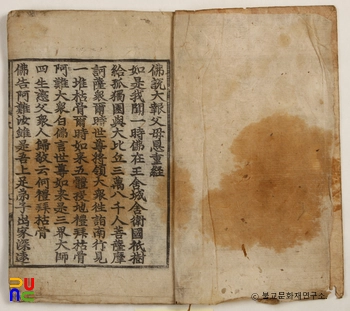 佛說大報父母恩重經
如是我聞一時佛在王舍城舍衛國祇樹
給孤獨園與大比丘三萬八千人菩薩摩
訶薩衆爾時世尊將領大衆往詣南行見
一堆枯骨爾時如來五體投地禮拜枯骨
阿難大衆白佛言世尊如來是三界大師
四生慈父衆人歸敬云何禮拜枯骨
佛告阿難汝雖是吾上足弟子出家深遠
© 불교문화재연구소